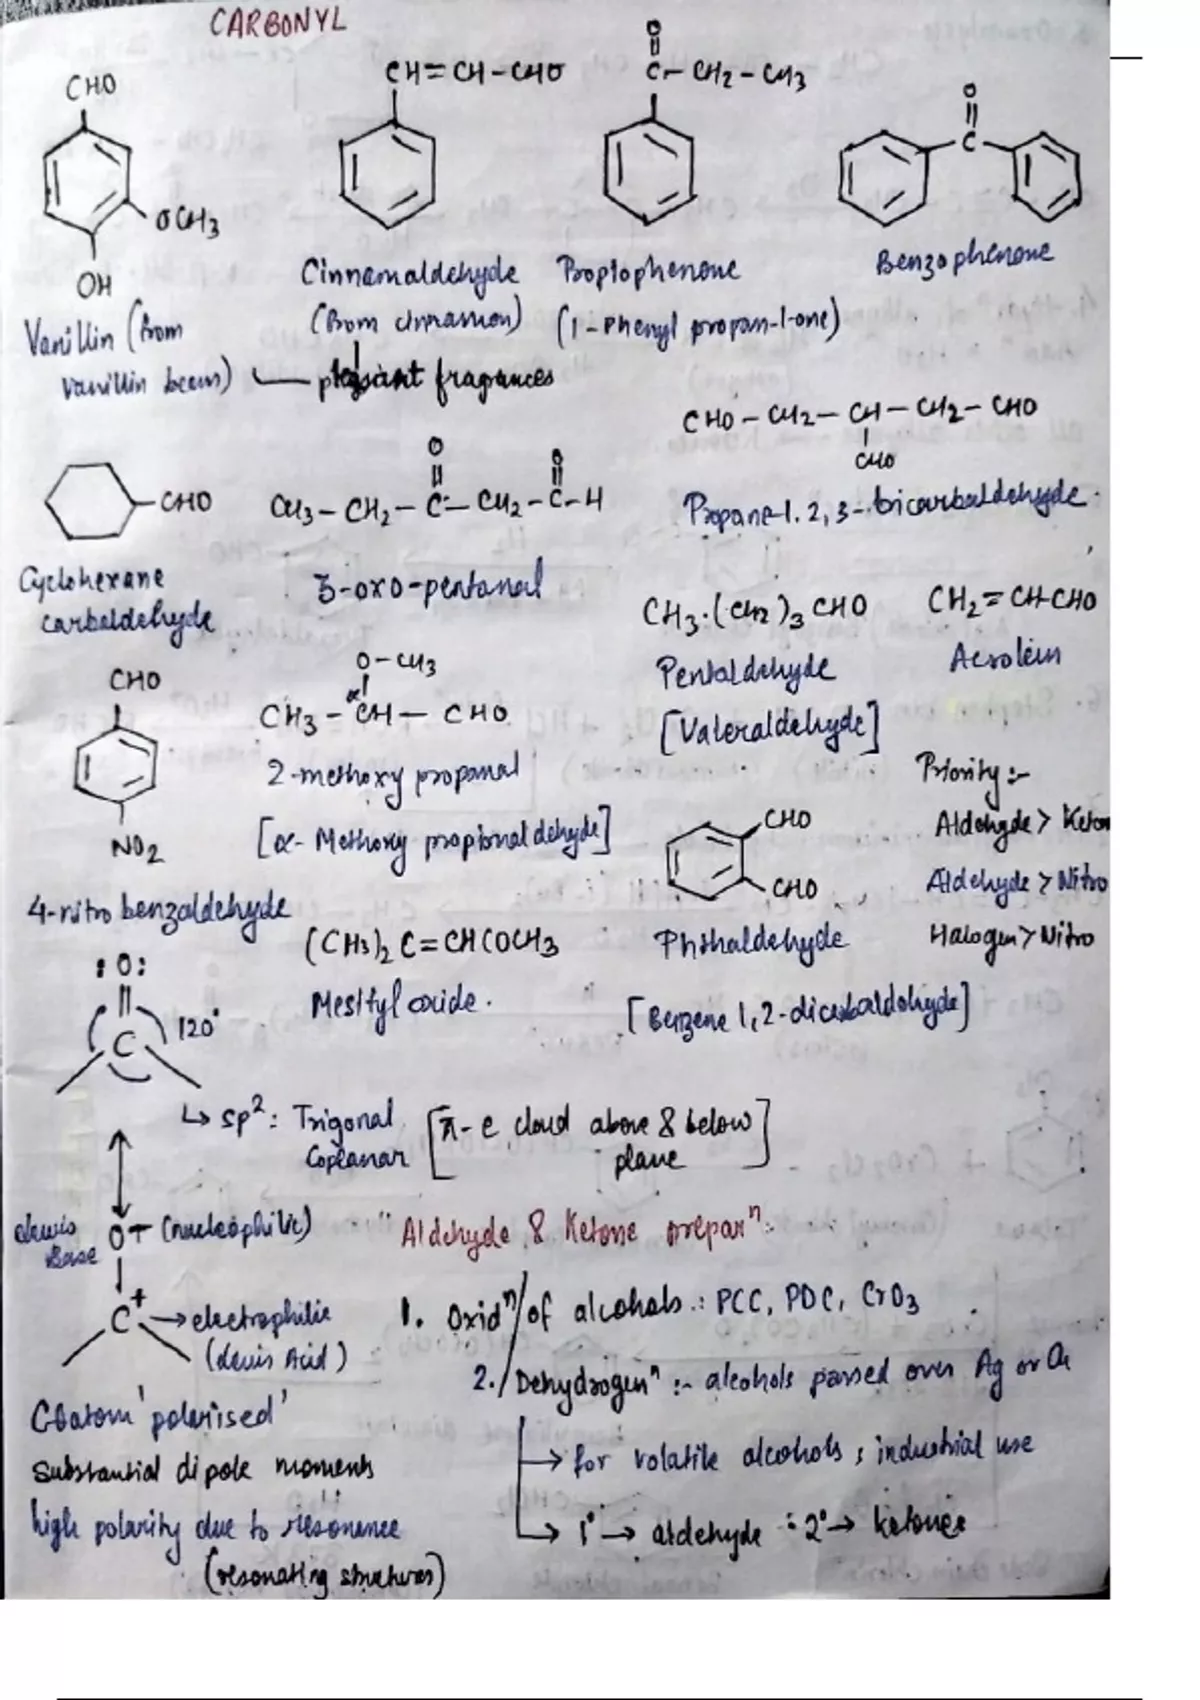 CARBONYL
CHO
OCH3
OH
Vanillin (from
vanillin beans)
CH=CH-CHO
Cinnamaldehyde
(from cinnamon)
pleasant fragrances
O
C-CH2-CH3
Propiophenone
(1-Phenyl propan-1-one)
O
C
Benzophenone
CHO
Cyclohexane
carbaldehyde
O O
CH3-CH2-C-CH2-C-H
3-oxo-pentanal
CHO-CH2-CH-CH2-CHO
CHO
Propane-1,2,3-tricarbaldehyde.
CH3.(CH2)3CHO
Pentaldehyde
[Valeraldehyde]
CH2=CH-CHO
Acrolein
CHO
NO2
4-nitro benzaldehyde
O-CH3
α
CH3-CH-CHO
2-methoxy propanal
[α-Methoxy propionaldehyde]
CHO
CHO
Phthaldehyde
[Benzene 1,2-dicarbaldehyde]
Priority :-
Aldehyde > Keton
Aldehyde > Nitro
Halogen > Nitro
(CH3)2C=CHCOCH3
Mesityl oxide.
:O:
C
120°
↳ sp2: Trigonal
Coplanar
[π-e cloud above & below
plane]
Lewis
Base
O- (nucleophilic)
C+ → electrophilic
(Lewis Acid)
polarised'
Substantial dipole moments
high polarity due to resonance
(resonating structures)
"Aldehyde & Ketone preparn:
1. Oxidn/of alcohols: PCC, PDC, CrO3
2./Dehydrogenn :- alcohols passed over Ag or Cu
→ for volatile alcohols; industrial use
→ 1° → aldehyde : 2° → ketones